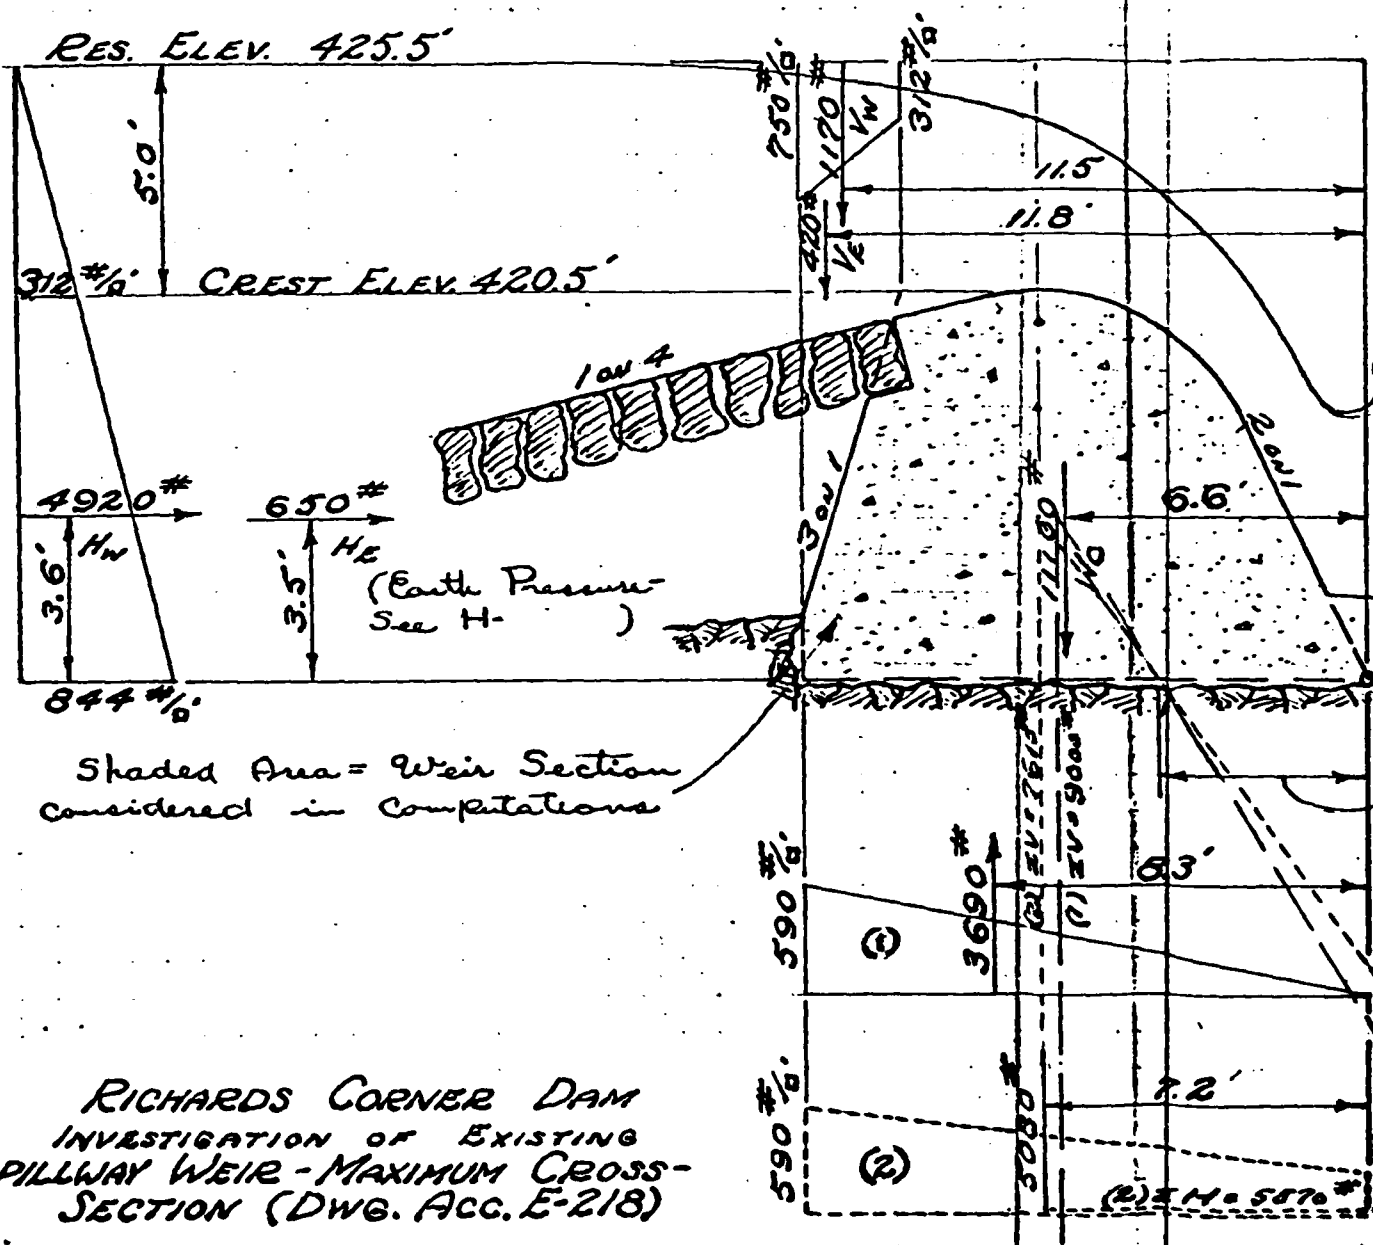 RES. ELEV. 425.5'
5.0'
312 #/□'
CREST ELEV. 420.5'
750 #/□'
1170 #
VW
312 #/□'
420 #
VE
11.5
11.8'
1 ON 4
3 ON 1
2 ON 1
4920 #
HW
3.6'
650 #
HE
3.5'
(Earth Pressure-
See H- )
844 #/□'
11780 #
6.6'
Shaded Area = Weir Section
considered in Computations
(1) ΣV = 9000 #
590 #/□'
(1)
3690 #
8.3'
590 #/□'
(2)
5080 #
7.2'
(2) ΣH = 5570 #
RICHARDS CORNER DAM
INVESTIGATION OF EXISTING
PILLWAY WEIR - MAXIMUM CROSS-
SECTION (DWG. ACC. E-218)